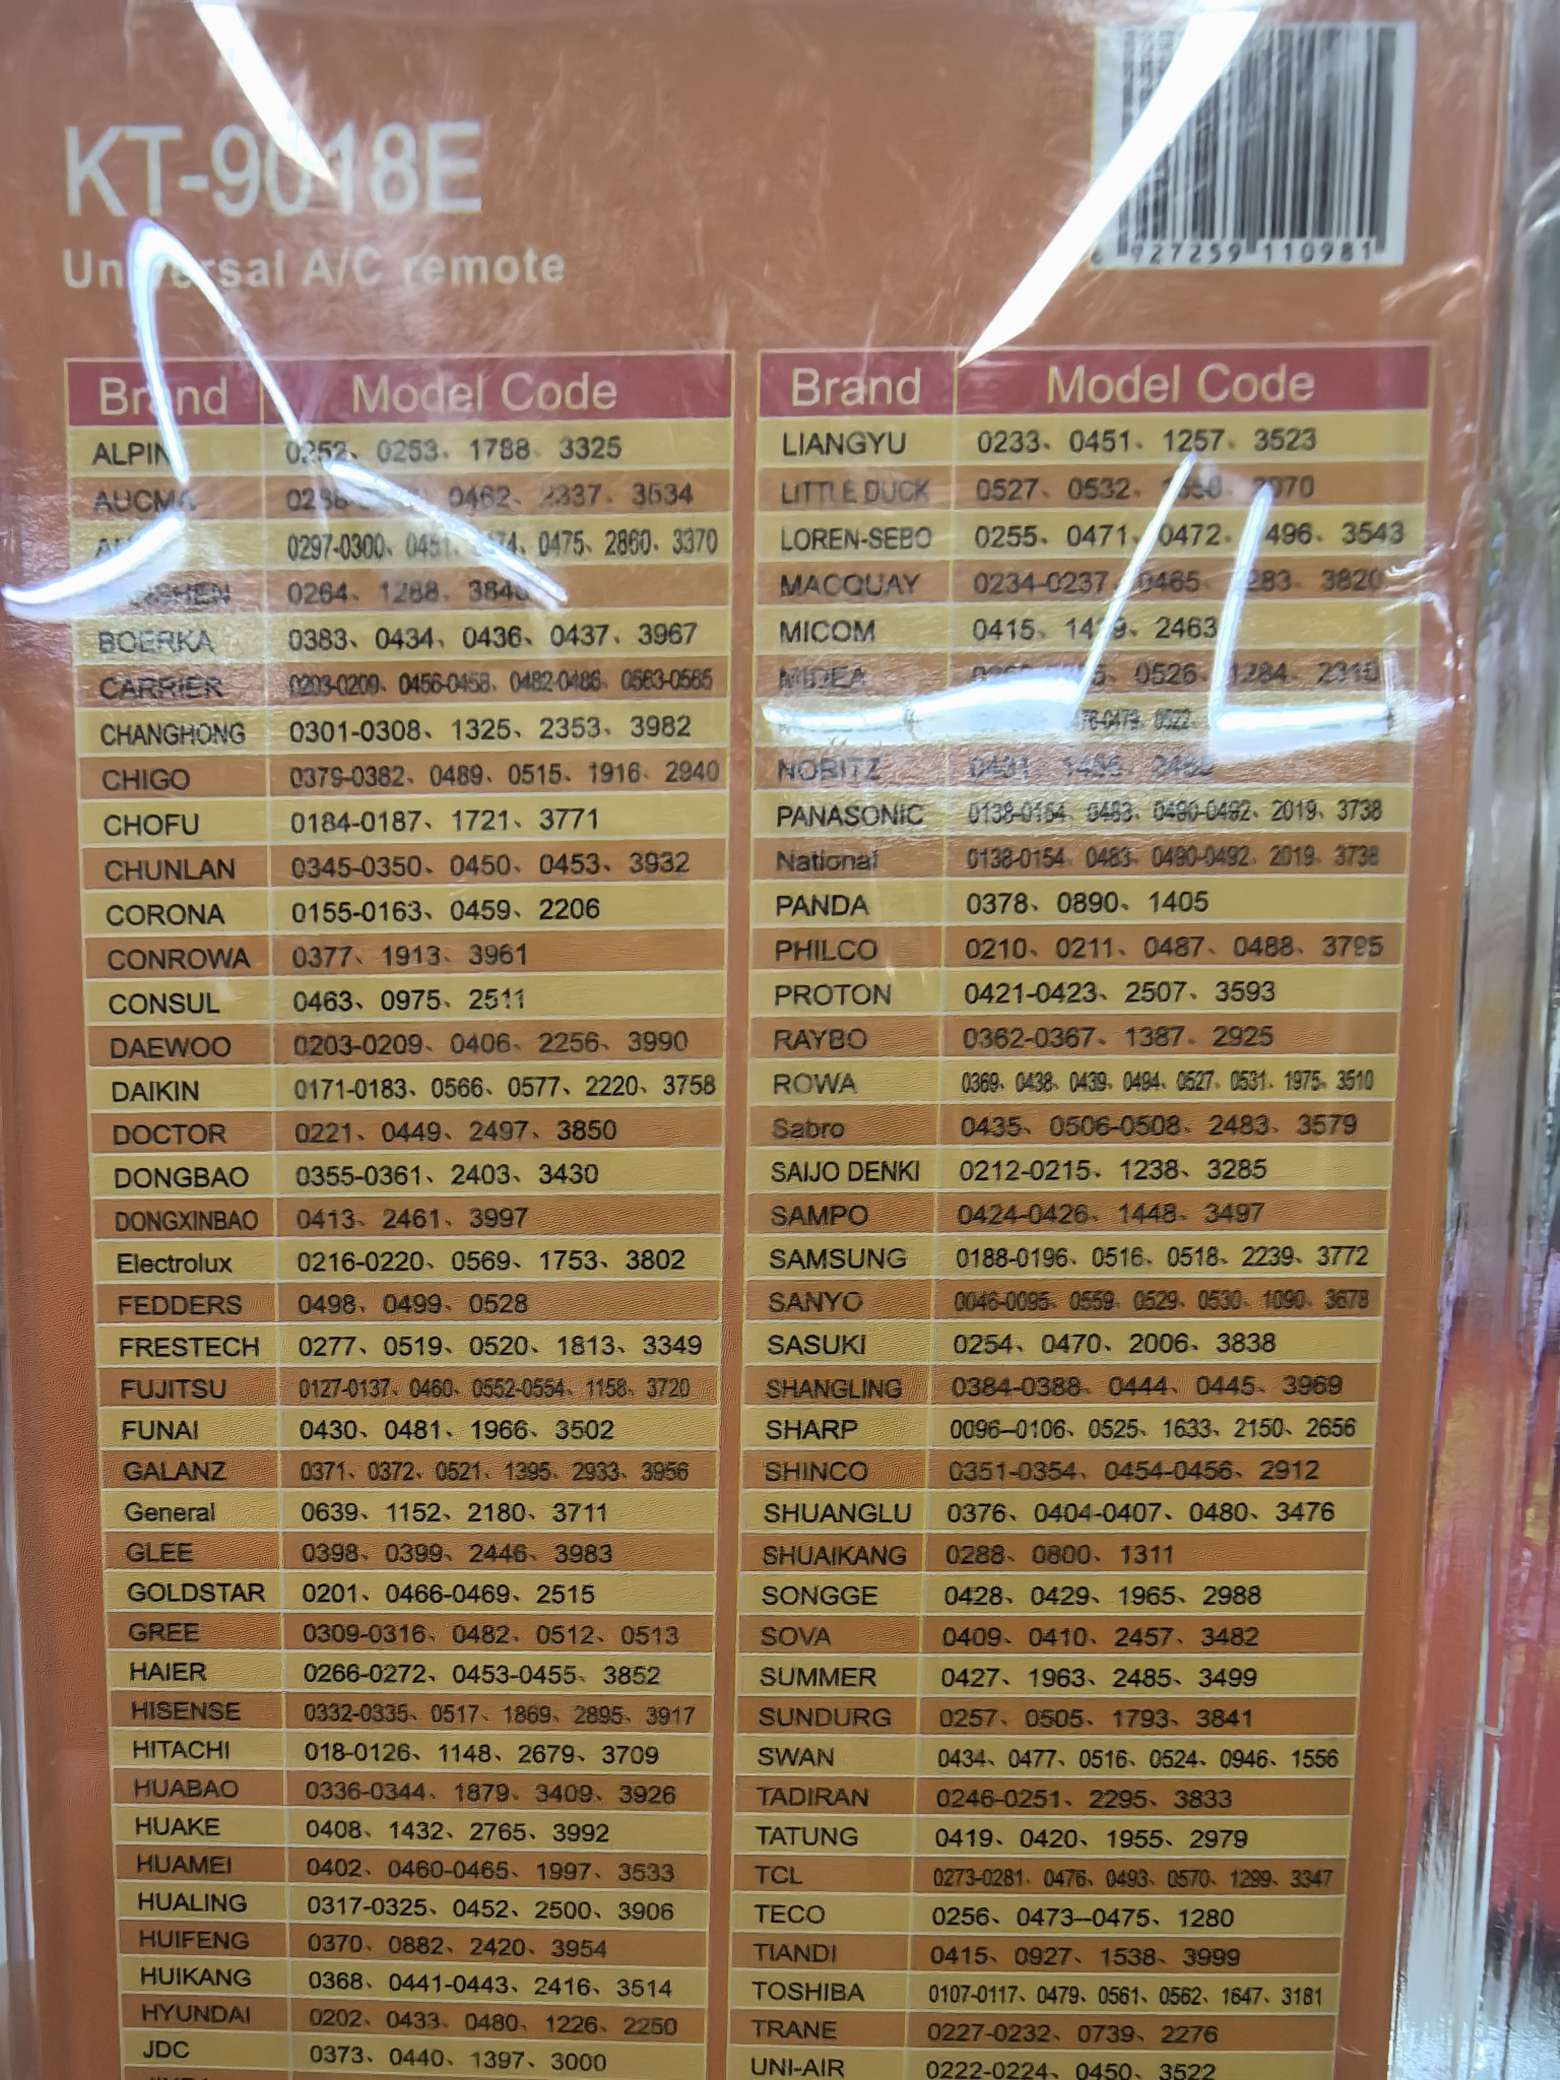 KT-9018E
Universal A/C remote
927259 110981
Brand Model Code
ALPIN 0252、0253、1788、3325
AUCMA 0462、2337、3534
0297-0300、0475、2860、3370
0264、1288、
BOERKA 0383、0434、0436、0437、3967
CARRIER 0203-0209、0456-0458、0482-0486、0563-0565
CHANGHONG 0301-0308、1325、2353、3982
CHIGO 0379-0382、0489、0515、1916、2940
CHOFU 0184-0187、1721、3771
CHUNLAN 0345-0350、0450、0453、3932
CORONA 0155-0163、0459、2206
CONROWA 0377、1913、3961
CONSUL 0463、0975、2511
DAEWOO 0203-0209、0406、2256、3990
DAIKIN 0171-0183、0566、0577、2220、3758
DOCTOR 0221、0449、2497、3850
DONGBAO 0355-0361、2403、3430
DONGXINBAO 0413、2461、3997
Electrolux 0216-0220、0569、1753、3802
FEDDERS 0498、0499、0528
FRESTECH 0277、0519、0520、1813、3349
FUJITSU 0127-0137、0460、0552-0554、1158、3720
FUNAI 0430、0481、1966、3502
GALANZ 0371、0372、0521、1395、2933、3956
General 0639、1152、2180、3711
GLEE 0398、0399、2446、3983
GOLDSTAR 0201、0466-0469、2515
GREE 0309-0316、0482、0512、0513
HAIER 0266-0272、0453-0455、3852
HISENSE 0332-0335、0517、1869、2895、3917
HITACHI 018-0126、1148、2679、3709
HUABAO 0336-0344、1879、3409、3926
HUAKE 0408、1432、2765、3992
HUAMEI 0402、0460-0465、1997、3533
HUALING 0317-0325、0452、2500、3906
HUIFENG 0370、0882、2420、3954
HUIKANG 0368、0441-0443、2416、3514
HYUNDAI 0202、0433、0480、1226、2250
JDC 0373、0440、1397、3000
Brand Model Code
LIANGYU 0233、0451、1257、3523
LITTLE DUCK 0527、0532、
LOREN-SEBO 0255、0471、0472、3543
MACQUAY 0234-0237、0465、3820
MICOM 0415、2463
MIDEA 0526、1284、2310
0522、
NORITZ
PANASONIC 0138-0154、0483、0490-0492、2019、3738
National 0138-0154、0483、0490-0492、2019、3738
PANDA 0378、0890、1405
PHILCO 0210、0211、0487、0488、3795
PROTON 0421-0423、2507、3593
RAYBO 0362-0367、1387、2925
ROWA 0369、0438、0439、0494、0527、0531、1975、3510
Sabro 0435、0506-0508、2483、3579
SAIJO DENKI 0212-0215、1238、3285
SAMPO 0424-0426、1448、3497
SAMSUNG 0188-0196、0516、0518、2239、3772
SANYO 0046-0095、0559、0529、0530、1090、3678
SASUKI 0254、0470、2006、3838
SHANGLING 0384-0388、0444、0445、3969
SHARP 0096–0106、0525、1633、2150、2656
SHINCO 0351-0354、0454-0456、2912
SHUANGLU 0376、0404-0407、0480、3476
SHUAIKANG 0288、0800、1311
SONGGE 0428、0429、1965、2988
SOVA 0409、0410、2457、3482
SUMMER 0427、1963、2485、3499
SUNDURG 0257、0505、1793、3841
SWAN 0434、0477、0516、0524、0946、1556
TADIRAN 0246-0251、2295、3833
TATUNG 0419、0420、1955、2979
TCL 0273-0281、0476、0493、0570、1299、3347
TECO 0256、0473–0475、1280
TIANDI 0415、0927、1538、3999
TOSHIBA 0107-0117、0479、0561、0562、1647、3181
TRANE 0227-0232、0739、2276
UNI-AIR 0222-0224、0450、3522